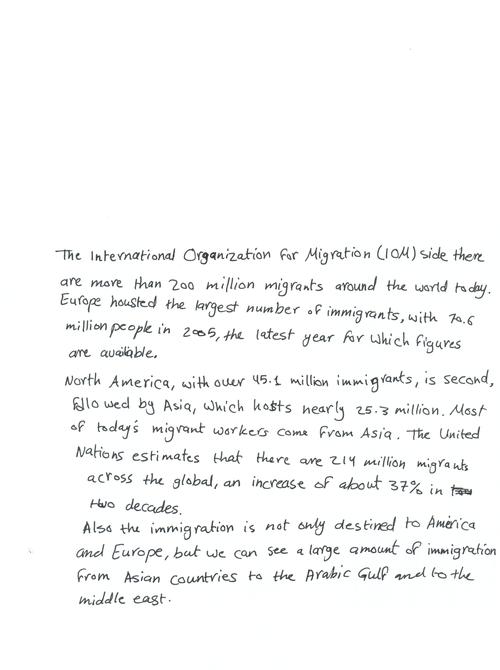 The International Organization For Migration (IOM) side there
are more than 200 million migrants around the world today.
Europe housted the largest number of immigrants, with 70.6
million people in 2005, the latest year for which figures
are available.
North America, with over 45.1 million immigrants, is second,
followed by Asia, which hosts nearly 25.3 million. Most
of today's migrant workers come from Asia. The United
Nations estimates that there are 214 million migrants
across the global, an increase of about 37% in
two decades.
Also the immigration is not only destined to America
and Europe, but we can see a large amount of immigration
from Asian countries to the Arabic Gulf and to the
middle east.